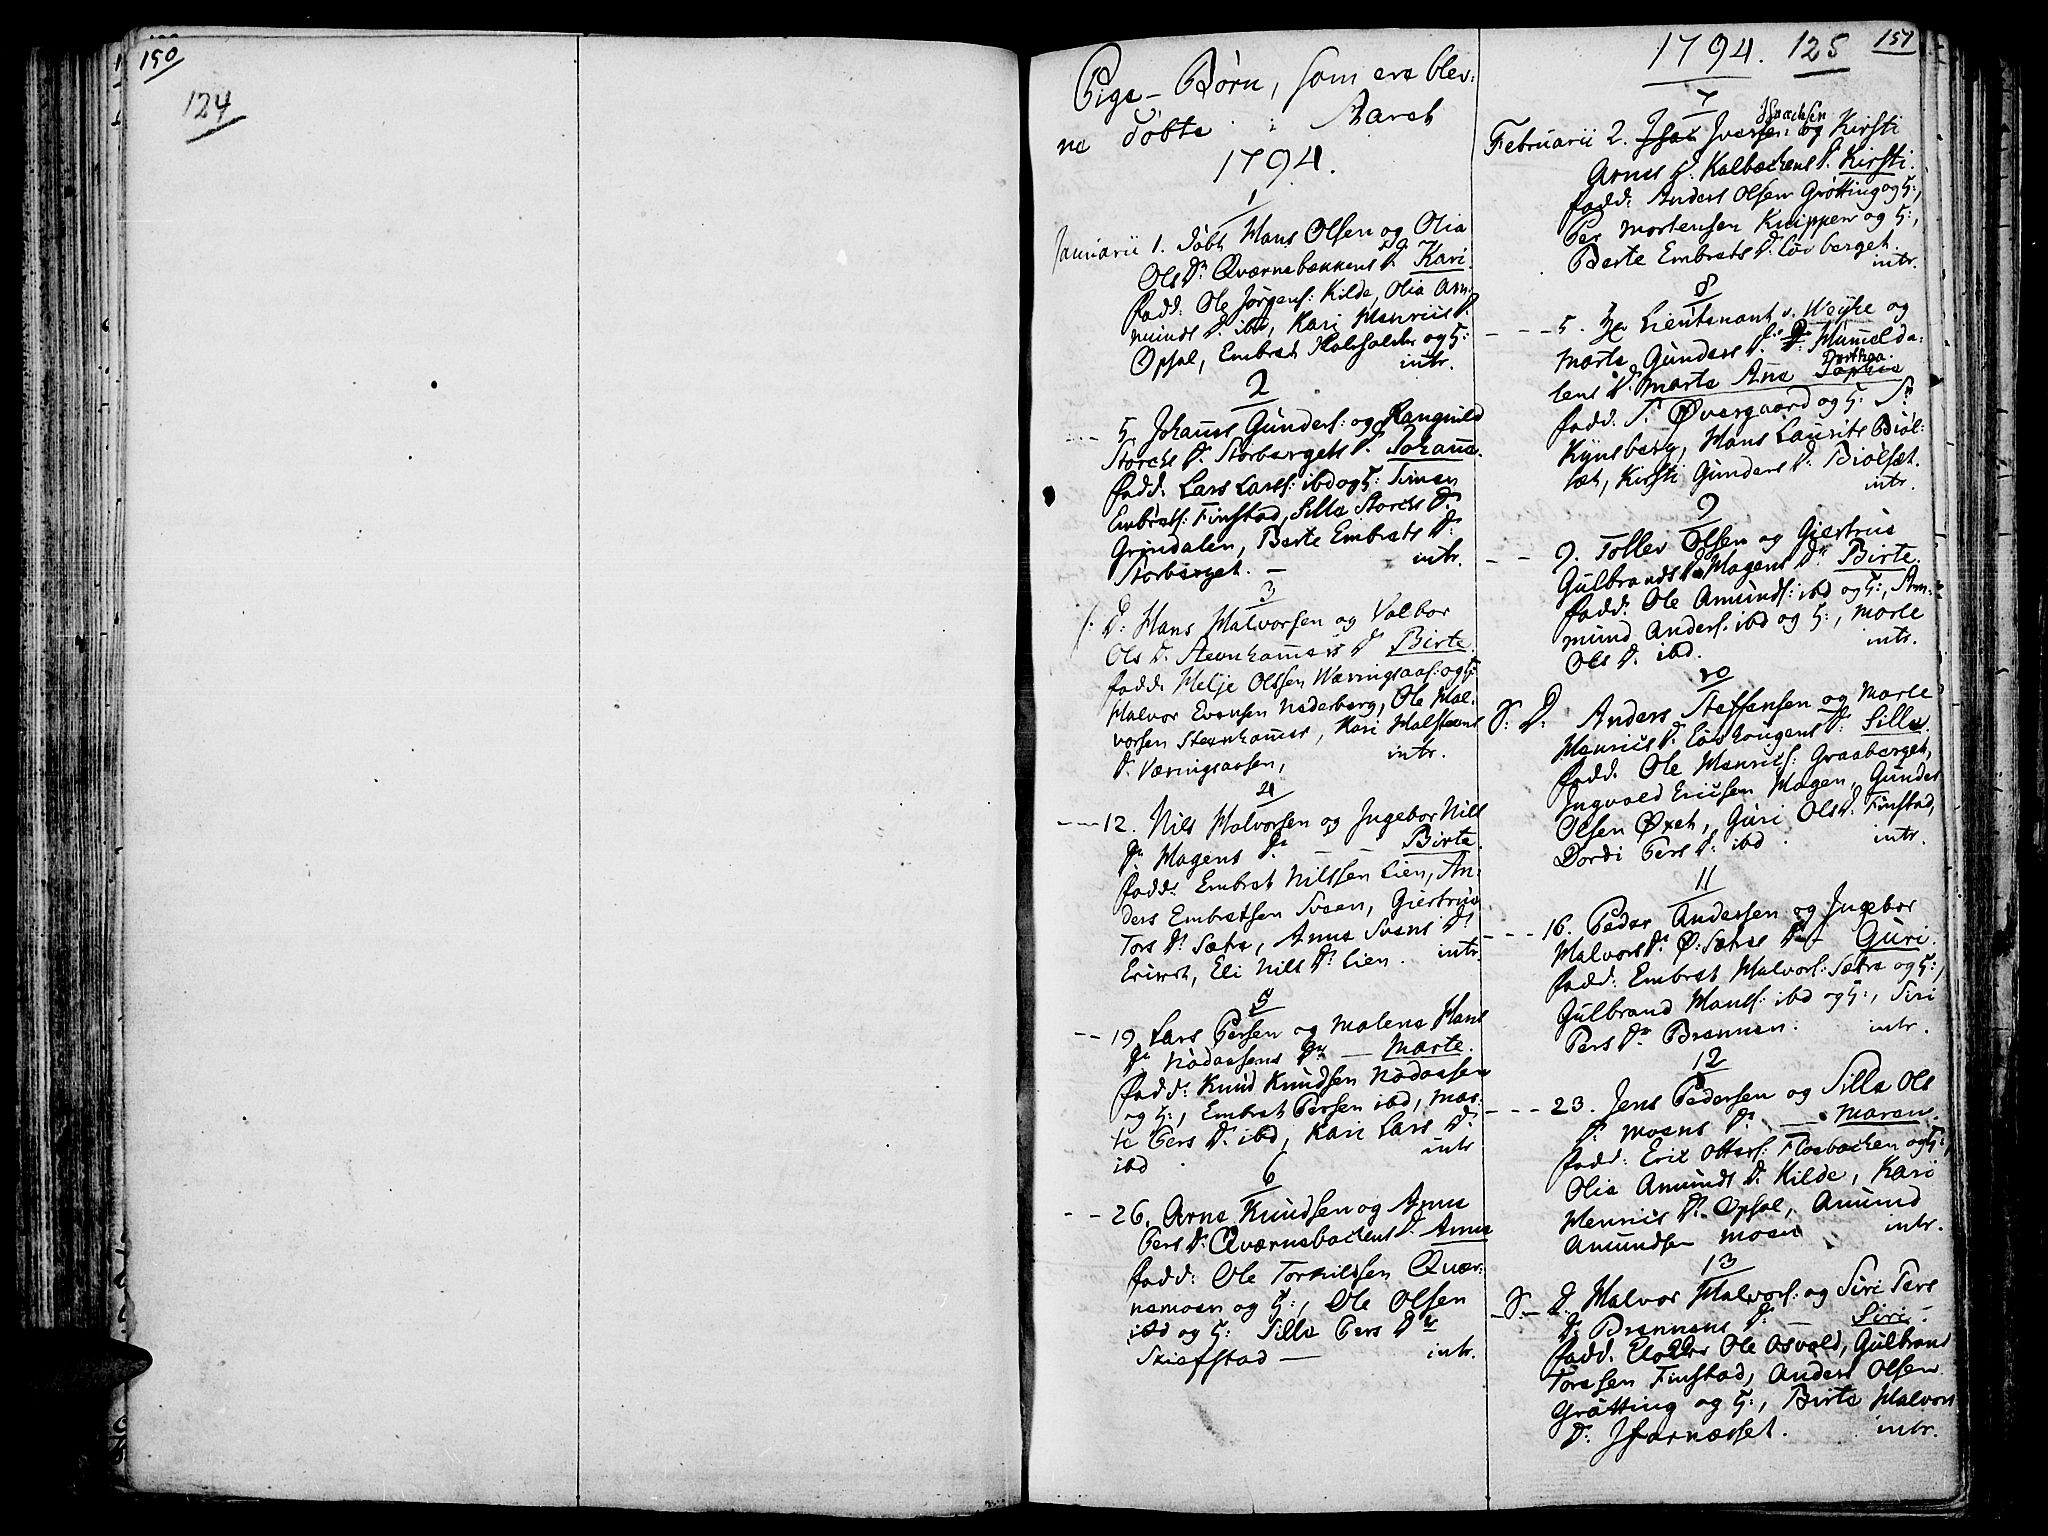 150
124
Pige-Børn, som ere blev:
ne døbte i Aaret
1794.
1
Januarii 1. døbt Hans Olsen og Olia
Ols Dr. Qværnebækkens D. Kari.
fadd: Ole Jørgens: Kilde, Olia Am:
munds D. ibd, Kari Henriis D.
Opsal, Embret Halsalder og H:
intr.
2
--- 5. Johannes Gunders: og Rangnild
Storchs D. Storbergets D. Johanne.
fadd. Lars Larss: ibd og H: Simen
Embrets: Finstad, Sille Storchs D.
Grindalen, Berte Embrets D.
Storberget. — intr.
3
D: Hans Halvorsen og Valbor
Ols D. Steenhamers D. Birte.
fadd. Helje Olssen Væringsaas: og H:
Halvor Evensen Naderberg, Ole Hal:
vorsen Steenhamer, Kari Halsteens
D. Væringsaasen, intr.
4
--- 12. Nils Halvorsen og Ingebor Nils
Dr. Hagens Dr. — — Birte.
fadd: Embret Nilssen Lien, An:
ders Embretsen Sveen, Giertrue
Tors Dr. Sætre, Anne Svens D.
Eriirst, Eli Nils D. Lien. intr.
5
-- 19. Lars Persen og Malene Hans
Dr. Nödaasens Dr. — Marte.
fadd: Knud Knudsen Nödaasen
og H:, Embret Persen ibd, Mar:
te Pers D. ibd, Kari Lars D.
ibd. intr
6
-- 26. Arne Knudsen og Anne
Pers D. Qværnebackens D. Anne
fadd: Ole Torkildsen Qvær:
nemoen og H:, Ole Olsen
ibd og H: Sille Pers Dr.
Skiefstad — intr.
1794. 125 151
7
Isachsen
Februarii 2. Isac Iversen og Kirsti
Arnes D. Kalbackens D. Kirsti.
fadd: Anders Olsen Grötting og H:,
Per Mortensen Knippen og H:,
Berte Embrets D. Löv berget.
intr.
8
--- 5. Hr Lieutenant v. Weyhe og
Marte Gunders D. Hummelda:
lens D. Marte Ane Sophie
Dorthea.
fadd. S. Övergaard og H: Sr.
Kynsberg, Hans Laurits Biöl:
set, Kirsti Gunders D. Biölset.
intr.
9
-- 9. Tollev Olsen og Giertrue
Gulbrands D. Hagens Dr. Birte.
fadd. Ole Amunds: ibd og H:, Am:
mund Anders: ibd og H:, Marte
Ols D. ibd. intr.
10
S: D: Anders Steffensen og Marte
Henriis D. Lövhaugens D. Sille.
fadd. Ole Henriis: Graaberget,
Ingvald Ericsen Hagen, Gunder
Olsen Öxet, Guri Ols D. Finstad,
Dordi Pers D. ibd. intr.
11
--- 16. Peder Andersen og Ingebor
Halvors D. Ö: Sætre D. — Guri.
fadd: Embret Halvors: Sætre og H:,
Gulbrand Hans: ibd og H:, Siri
Pers Dr. Brennen. intr.
12
--- 23. Jens Pedersen og Sille Ols
D. Moens D. — Maren.
fadd: Erix Otters: Flosbacken og H:,
Olia Amunds D. Kilde, Kari
Henriis D. Opsal, Amund
Amundsen Moen intr.
13
S. — D. Halvor Halvors: og Siri Pers
D: Brennens D. — Siri.
fadd. Ole Osvold, Gulbrand
Toresen Finstad, Anders Olsen
Grötting og H:, Birte Halvors
D. Ifarnæsset. intr.